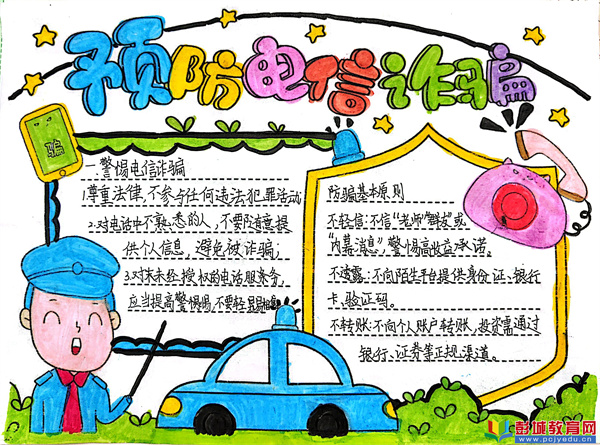 预防电信诈骗
骗
一.警惕电信诈骗
1.尊重法律,不参与任何违法犯罪活动
2.对电话中不熟悉的人,不要随意提
供个人信息,避免被诈骗,
3.对未经授权的电话服务,
应当提高警惕,不要轻易
防骗基本原则
不轻信:不信"老师""群友"或
"内幕消息",警惕高收益承诺。
不透露:不向陌生平台提供身份证、银行
卡、验证码。
不转账:不向个人账户转账,投资需通过
银行、证券等正规渠道。
彭城教育网
www.pcjyedu.cn